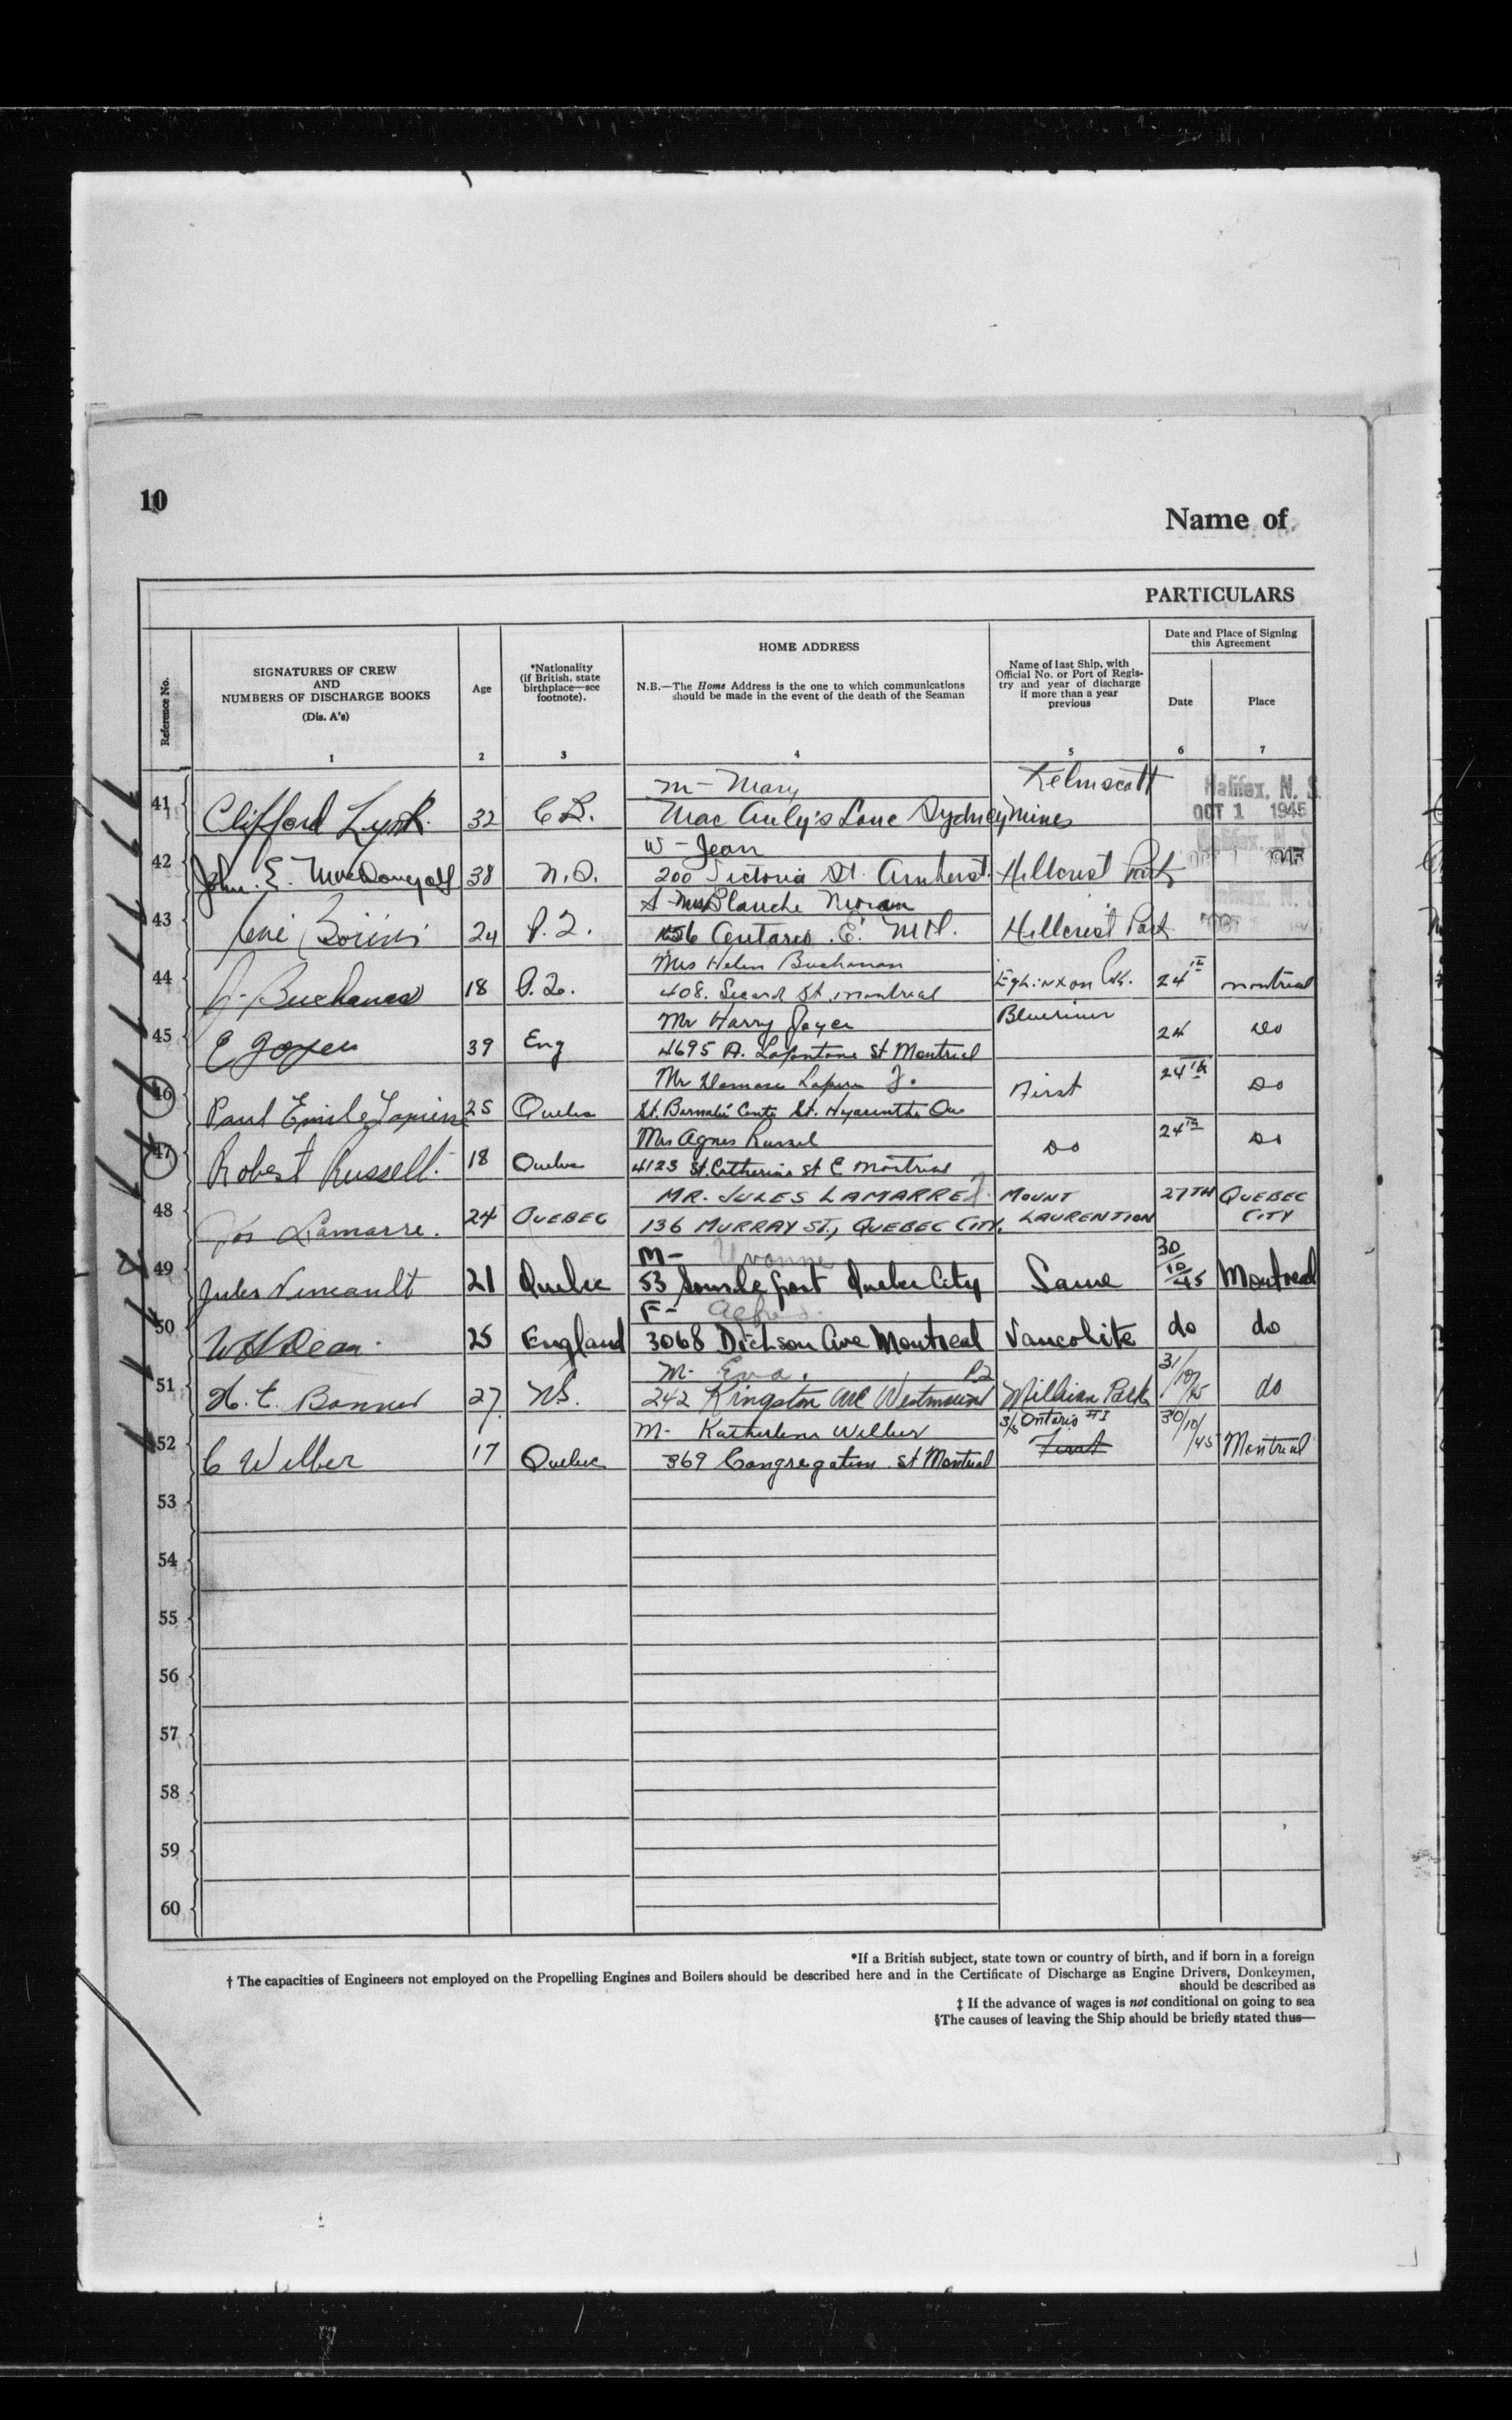 10
Name of
PARTICULARS
Reference No.
SIGNATURES OF CREW
AND
NUMBERS OF DISCHARGE BOOKS
(Dis. A's)
1
Age
2
*Nationality
(if British, state
birthplace—see
footnote).
3
HOME ADDRESS
N.B.—The Home Address is the one to which communications
should be made in the event of the death of the Seaman
4
Name of last Ship, with
Official No. or Port of Regis-
try and year of discharge
if more than a year
previous
5
Date and Place of Signing
this Agreement
Date
6
Place
7
41 Clifford Lynk 32 C.B.
m - Mary
Mac Auly's Lane Sydney Mines
Kelmscott
Halifax, N. S.
OCT 1 1945
42 John. E. MacDougall 38 N.S.
W - Jean
200 Victoria St. Amherst
Hillcrest Park
43 24 P.Q.
Blanche
Ontario E. Mtl.
Hillcrest Park
44 Buchanan 18 P.Q.
Mrs Helen Buchanan
408. Sicard St. montreal
Eglinton Pk.
24th montreal
45 E Joyce 39 Eng
Mr Harry Joyce
4695 A. Lafontane St Montreal
24 Do
46 Paul Emile 25 Quebec
Mr
St. Barnabé Conte St. Hyacinthe Que
First
24th Do
47 Robert Russell. 18 Quebec
Mrs Agnes Russel
4123 St. Catherine St E Montreal
Do
24th Do
48 Jos Lamarre. 24 QUEBEC
MR. JULES LAMARRE
136 MURRAY ST., QUEBEC CITY.
MOUNT
LAURENTION
27TH QUEBEC
CITY
49 Jules 21 Quebec
M- Yvonne
53 Quebec City
Same
30/10/45 Montreal
50 W H Dean. 25 England
F-
3068 Dickson Ave Montreal
Vancolite
do do
51 27 N.S.
M- Eva. P.Q
242 Kingston Ave Westmount
Park
31/10/45 do
52 C Wilber 17 Quebec
M- Wilber
369 Congregation St Montreal
S/S Ontario #1
First
30/10/45 Montreal
53
54
55
56
57
58
59
60
*If a British subject, state town or country of birth, and if born in a foreign
† The capacities of Engineers not employed on the Propelling Engines and Boilers should be described here and in the Certificate of Discharge as Engine Drivers, Donkeymen,
should be described as
‡ If the advance of wages is not conditional on going to sea
§The causes of leaving the Ship should be briefly stated thus—